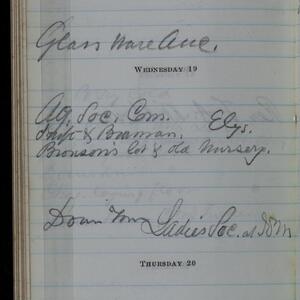 Glass Ware Auc.
WEDNESDAY 19
Ag. Soc. Com. Elys.
& Braman.
Bronson's lot & old Nursery.
Ladies Soc. at
THURSDAY 20